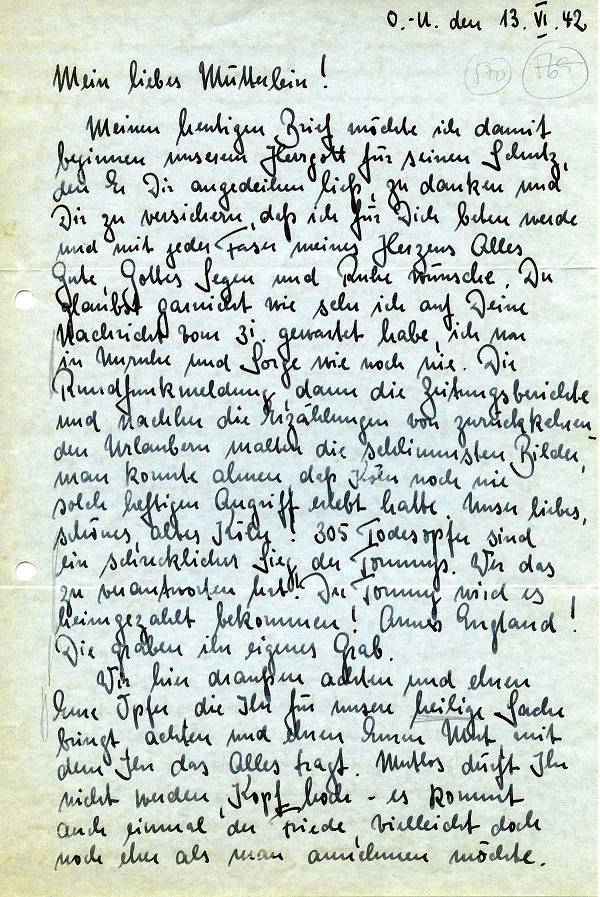 O.-U. den 13. VI. 42
570 569
Mein liebes Mütterlein!
Meinen heutigen Brief möchte ich damit
beginnen unserem Herrgott für seinen Schutz,
den Er Dir angedeihen ließ, zu danken und
Dir zu versichern, daß ich für Dich beten werde
und mit jeder Faser meines Herzens Alles
Gute, Gottes Segen und Ruhe wünsche. Du
glaubst garnicht wie sehr ich auf Deine
Nachricht vom 31. gewartet habe, ich war
in Unruhe und Sorge wie noch nie. Die
Rundfunkmeldung, dann die Zeitungsberichte
und nachher die Erzählungen von zurückkehren-
den Urlaubern malten die schlimmsten Bilder,
man konnte ahnen, daß Köln noch nie
solch heftigen Angriff erlebt hatte. Unser liebes,
schönes, altes Köln! 305 Todesopfer sind
ein schrecklicher Sieg der Tommys. Wer das
zu verantworten hat! Der Tommy wird es
heimgezahlt bekommen! Armes England!
Die graben ihr eigenes Grab.
Wir hier draußen achten und ehren
Eure Opfer die Ihr für unsere heilige Sache
bringt, achten und ehren Euren Mut mit
dem Ihr das Alles tragt. Mutlos dürft Ihr
nicht werden, Kopf hoch - es kommt
auch einmal der Friede, vielleicht doch
noch eher als man annehmen möchte.